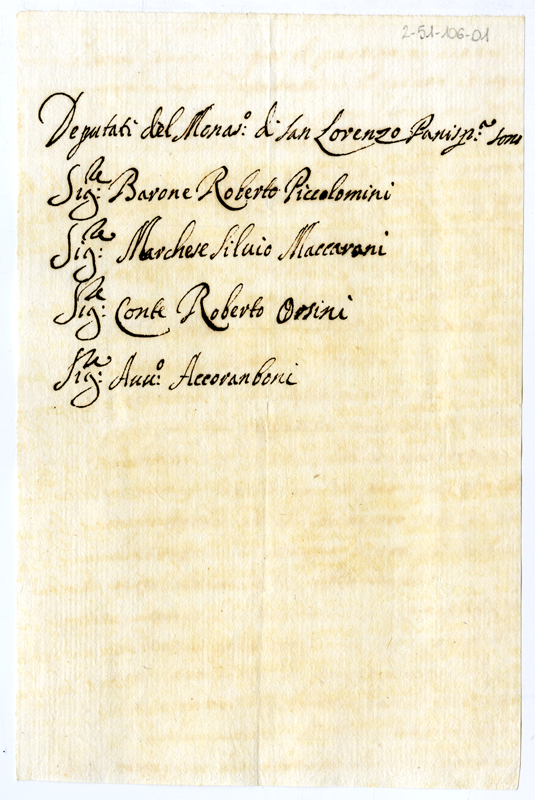 2-51-106-01
Deputati del Monas.o di San Lorenzo Panisp.a sono
Sig.re Barone Roberto Piccolomini
Sig.re Marchese Silvio Maccarani
Sig.re Conte Roberto Orsini
Sig.re Auu.o Accoranboni